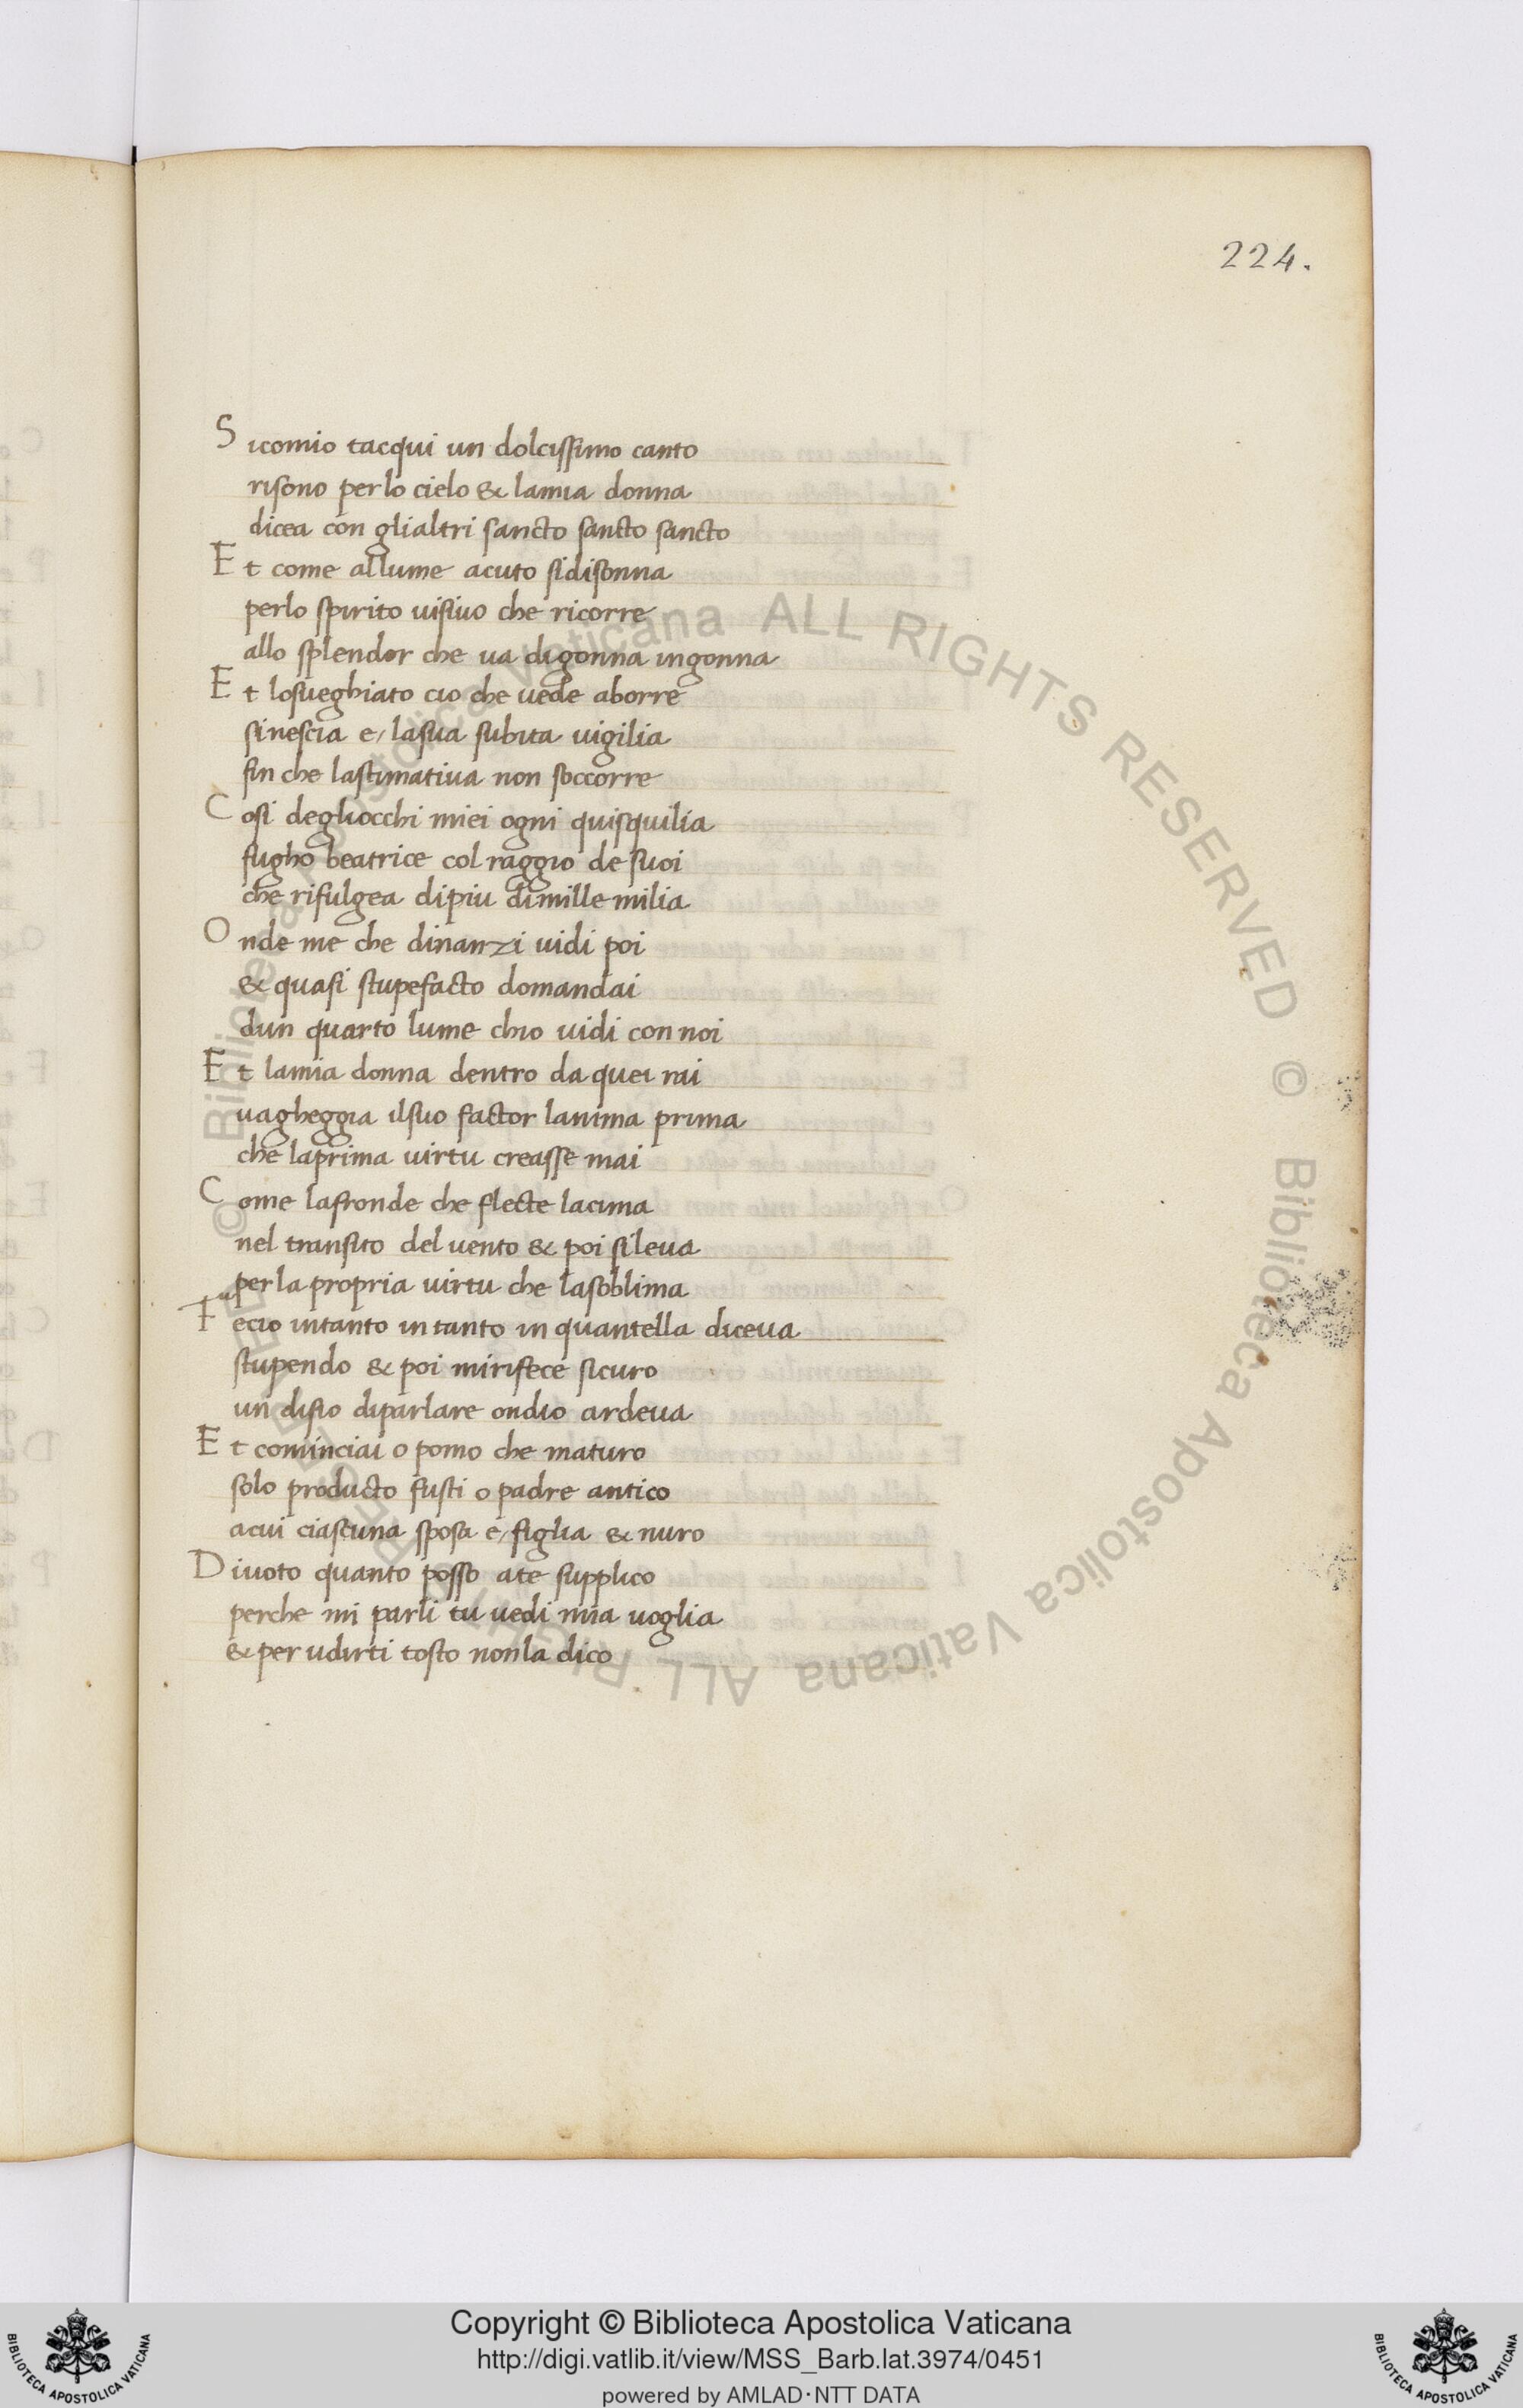 224.
Sicomio tacqui un dolcissimo canto
risono perlo cielo & lamia donna
dicea con glialtri sancto sancto sancto
Et come allume acuto sidisonna
perlo spirito uisiuo che ricorre
allo splendor che ua digonna ingonna
Et losueghiato cio che uede aborre
sinescia e/ lasua subita uigilia
fin che lastimatiua non soccorre
Cosi degliocchi miei ogni quisquilia
fugho beatrice col raggio de suoi
che rifulgea dipiu dimille milia
Onde me che dinanzi uidi poi
& quasi stupefacto domandai
dun quarto lume chio uidi con noi
Et lamia donna dentro da quei rai
uagheggia ilsuo factor lanima prima
che laprima uirtu creasse mai
Come lafronde che flecte lacima
nel transito del uento & poi sileua
per la propria uirtu che lasoblima
Fecio intanto in tanto in quantella diceua
stupendo & poi mirifece sicuro
un disio diparlare ondio ardeua
Et cominciai o pomo che maturo
solo producto fusti o padre antico
acui ciascuna sposa e/ figlia & nuro
Diuoto quanto posso ate supplico
perche mi parli tu uedi mia uoglia
& per udirti tosto nonla dico
© Biblioteca Apostolica Vaticana ALL RIGHTS RESERVED © Biblioteca Apostolica Vaticana ALL RIGHTS RESERVED
Copyright © Biblioteca Apostolica Vaticana
http://digi.vatlib.it/view/MSS_Barb.lat.3974/0451
powered by AMLAD·NTT DATA
BIBLIOTECA APOSTOLICA VATICANA
BIBLIOTECA APOSTOLICA VATICANA